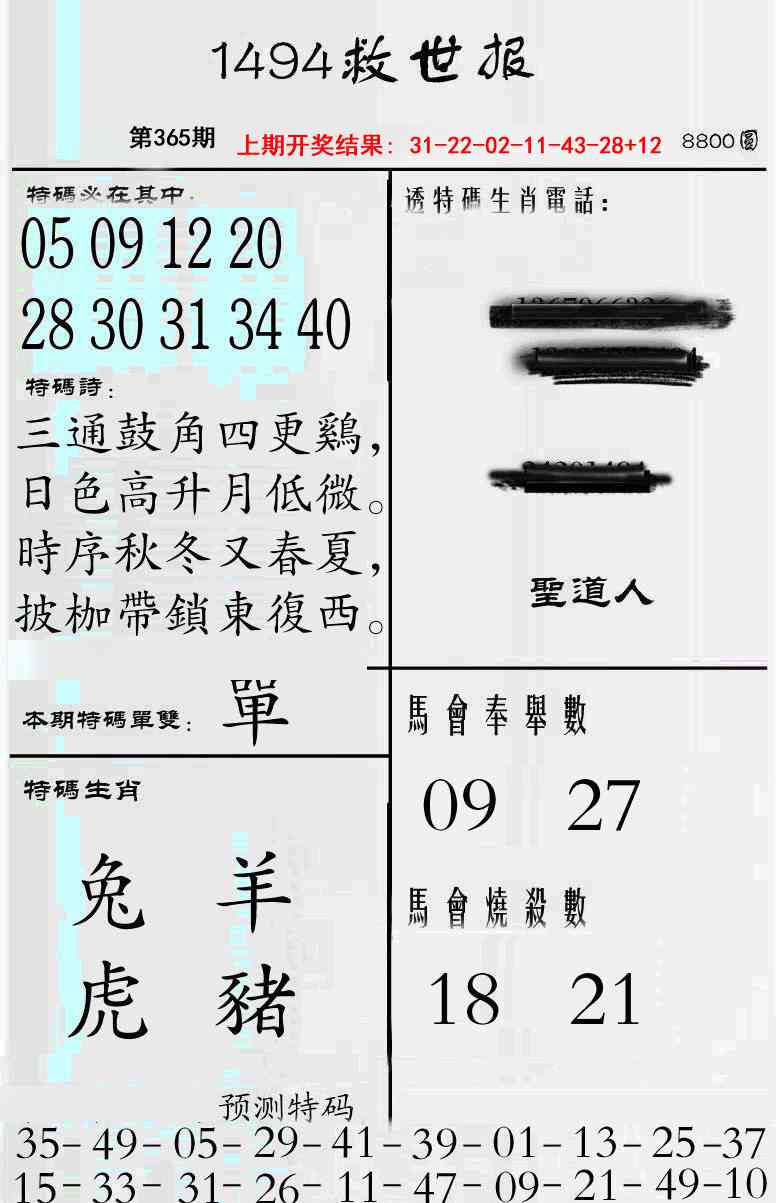 1494救世报
第365期 上期开奖结果: 31-22-02-11-43-28+12 8800圓
特碼必在其中.
05 09 12 20
28 30 31 34 40
特碼詩:
三通鼓角四更鷄,
日色高升月低微。
時序秋冬又春夏,
披枷帶鎖東復西。
本期特碼單雙: 單
特碼生肖
兔 羊
虎 豬
透特碼生肖電話:
聖道人
馬會奉舉數
09 27
馬會燒殺數
18 21
预测特码
35-49-05-29-41-39-01-13-25-37
15-33-31-26-11-47-09-21-49-10